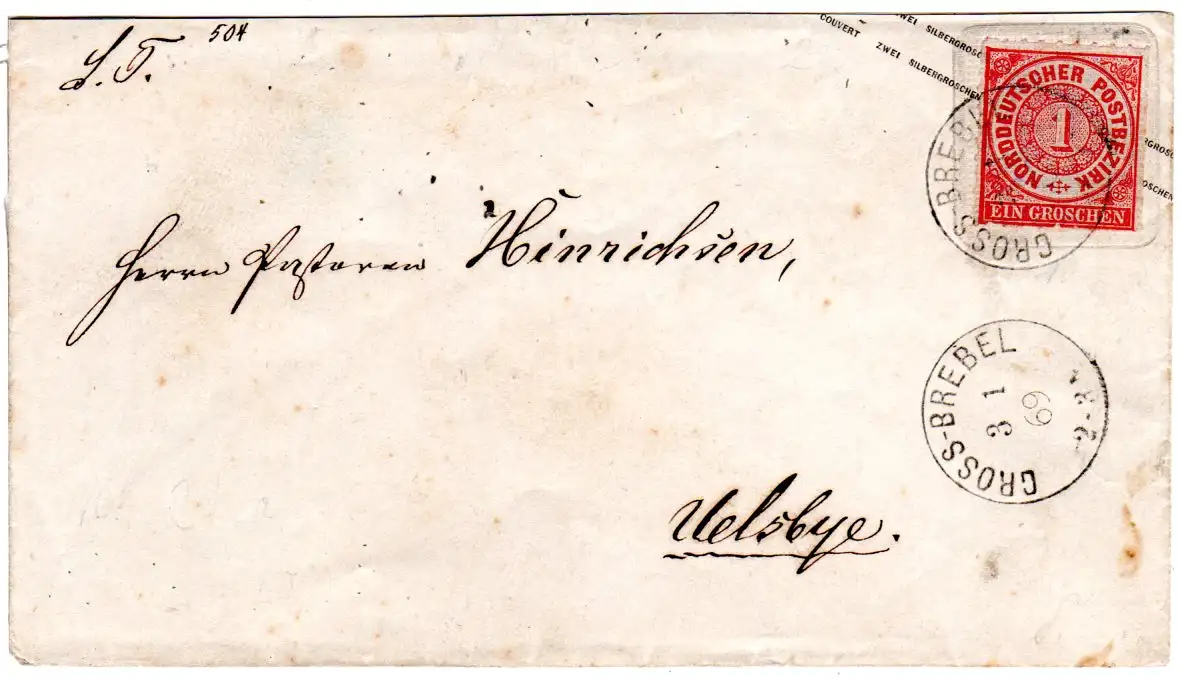 S. T.
504
COUVERT ZWEI SILBERGROSCHEN
ZWEI SILBERGROSC
RGROSC
OSCHEN
NORDDEUTSCHER POSTBEZIRK
1
EIN GROSCHEN
GROSS-BREB
Herrn Pastoren Hinrichsen,
GROSS-BREBEL
3 1
69
2-3
Uelsbye.